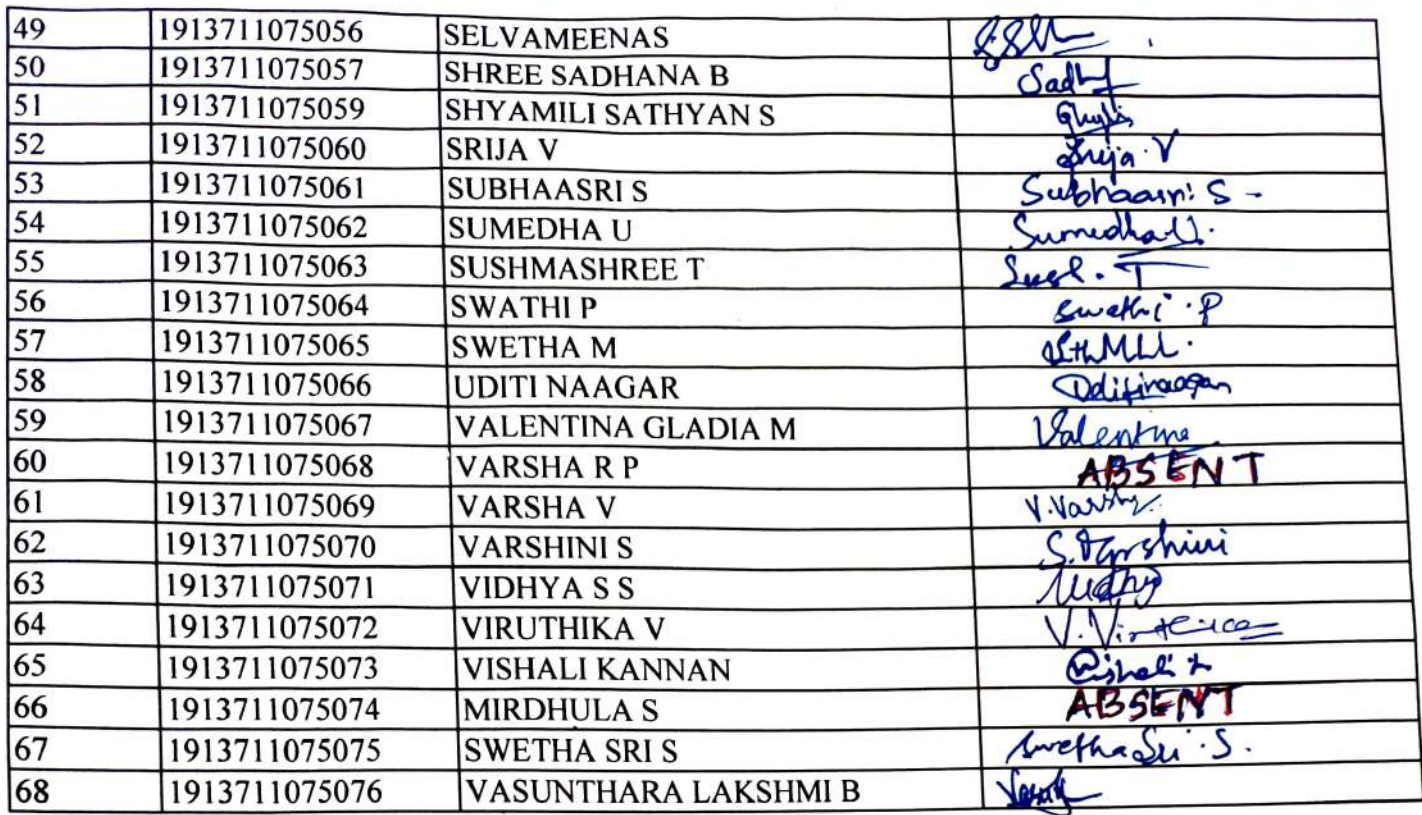 49 1913711075056 SELVAMEENAS
50 1913711075057 SHREE SADHANA B
51 1913711075059 SHYAMILI SATHYAN S
52 1913711075060 SRIJA V Srija. V
53 1913711075061 SUBHAASRI S Subhaasri. S -
54 1913711075062 SUMEDHA U Sumedha.U.
55 1913711075063 SUSHMASHREE T
56 1913711075064 SWATHI P swathi. P
57 1913711075065 SWETHA M
58 1913711075066 UDITI NAAGAR
59 1913711075067 VALENTINA GLADIA M Valentina
60 1913711075068 VARSHA R P ABSENT
61 1913711075069 VARSHA V V.Varsha
62 1913711075070 VARSHINI S S.Varshini
63 1913711075071 VIDHYA S S
64 1913711075072 VIRUTHIKA V
65 1913711075073 VISHALI KANNAN
66 1913711075074 MIRDHULA S ABSENT
67 1913711075075 SWETHA SRI S Swetha Sri. S.
68 1913711075076 VASUNTHARA LAKSHMI B